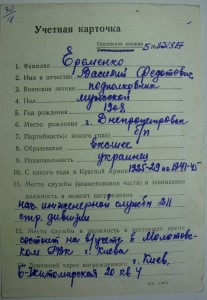 Учетная карточка
Орденская книжка
1. Фамилия Еременко
2. Имя и отчество Василий Федотович
3. Воинское звание подполковник
4. Пол мужской
5. Год рождения 1908
6. Место рождения г. Днепропетровск
7. Партийность(с какого года) б/п
8. Образование высшее
9. Национальность украинец
10. С какого года в Красной Армии 1925-29 по 1941-45
11. Место службы (наименование части) и занимаемая
должность в момент награждения
нач. инженерной службы 211
стр. дивизии
12. Место службы и должность в настоящее время
состоит на учете в Молотовс-
ком РВК г. Киева
13. Домашний адрес награжденного г. Киев,
б-Житомирская 20 кв 4